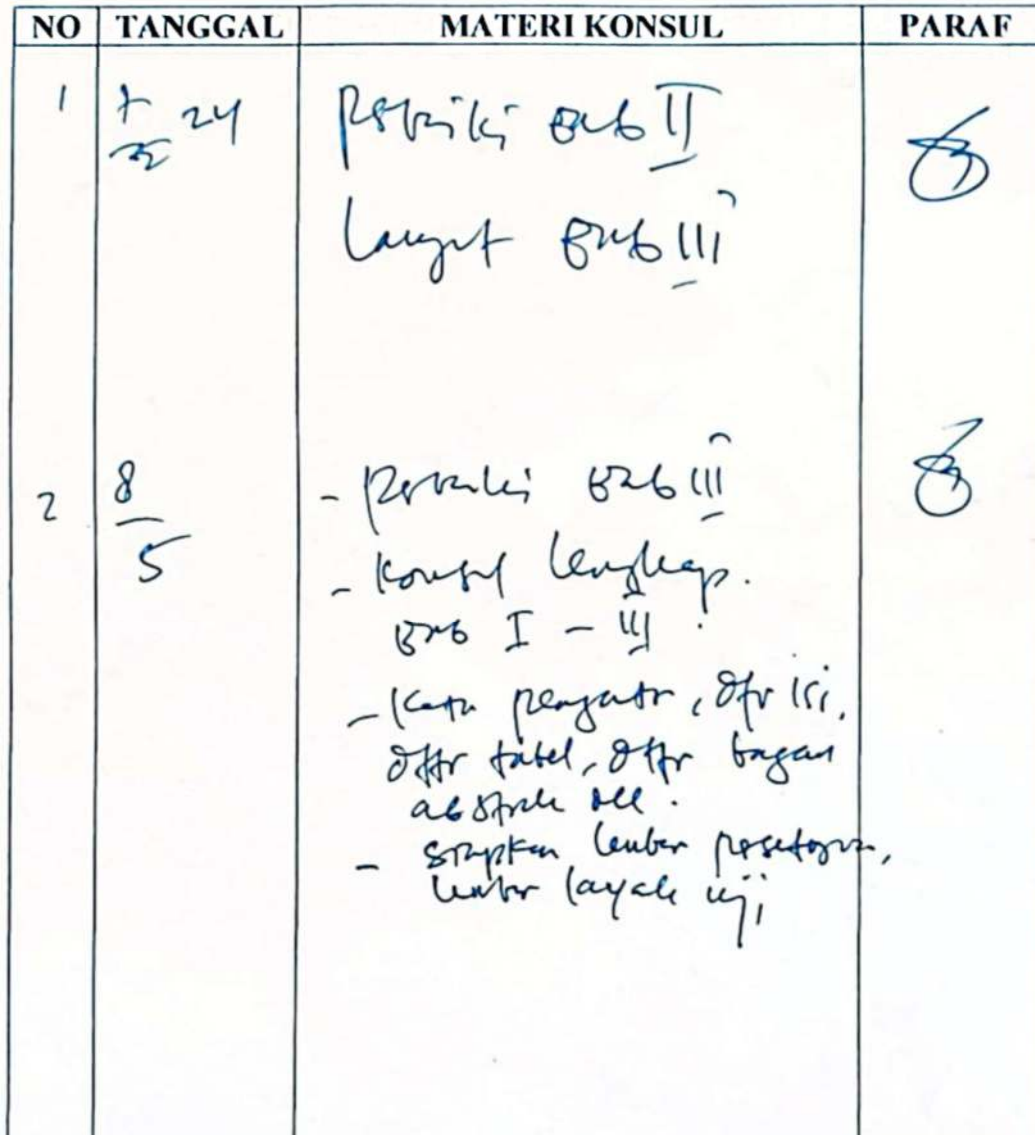 NO TANGGAL MATERI KONSUL PARAF
1 7/5 24 Perbaiki Bab II
Lanjut Bab III
2 8/5 - Perbaiki Bab III
- Konsul lengkap.
Bab I - III
- Kata pengantr, Dftr isi,
Dftr tabel, Dftr bagan
abstrak dll.
- Siapkan lembar persetujuan,
lembr layak uji